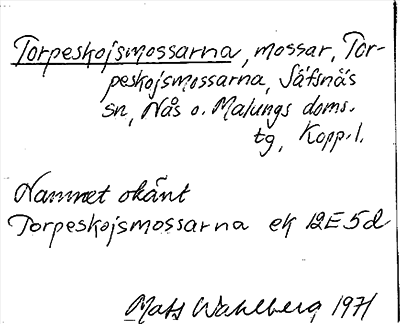 Torpeskojsmossarna, mossar, Tor-
peskojsmossarna, Säfsnäs
sn, Nås o. Malungs doms.
tg, Kopp.l.
Namnet okänt
Torpeskojsmossarna ek 12E5d
Mats Wahlberg 1971